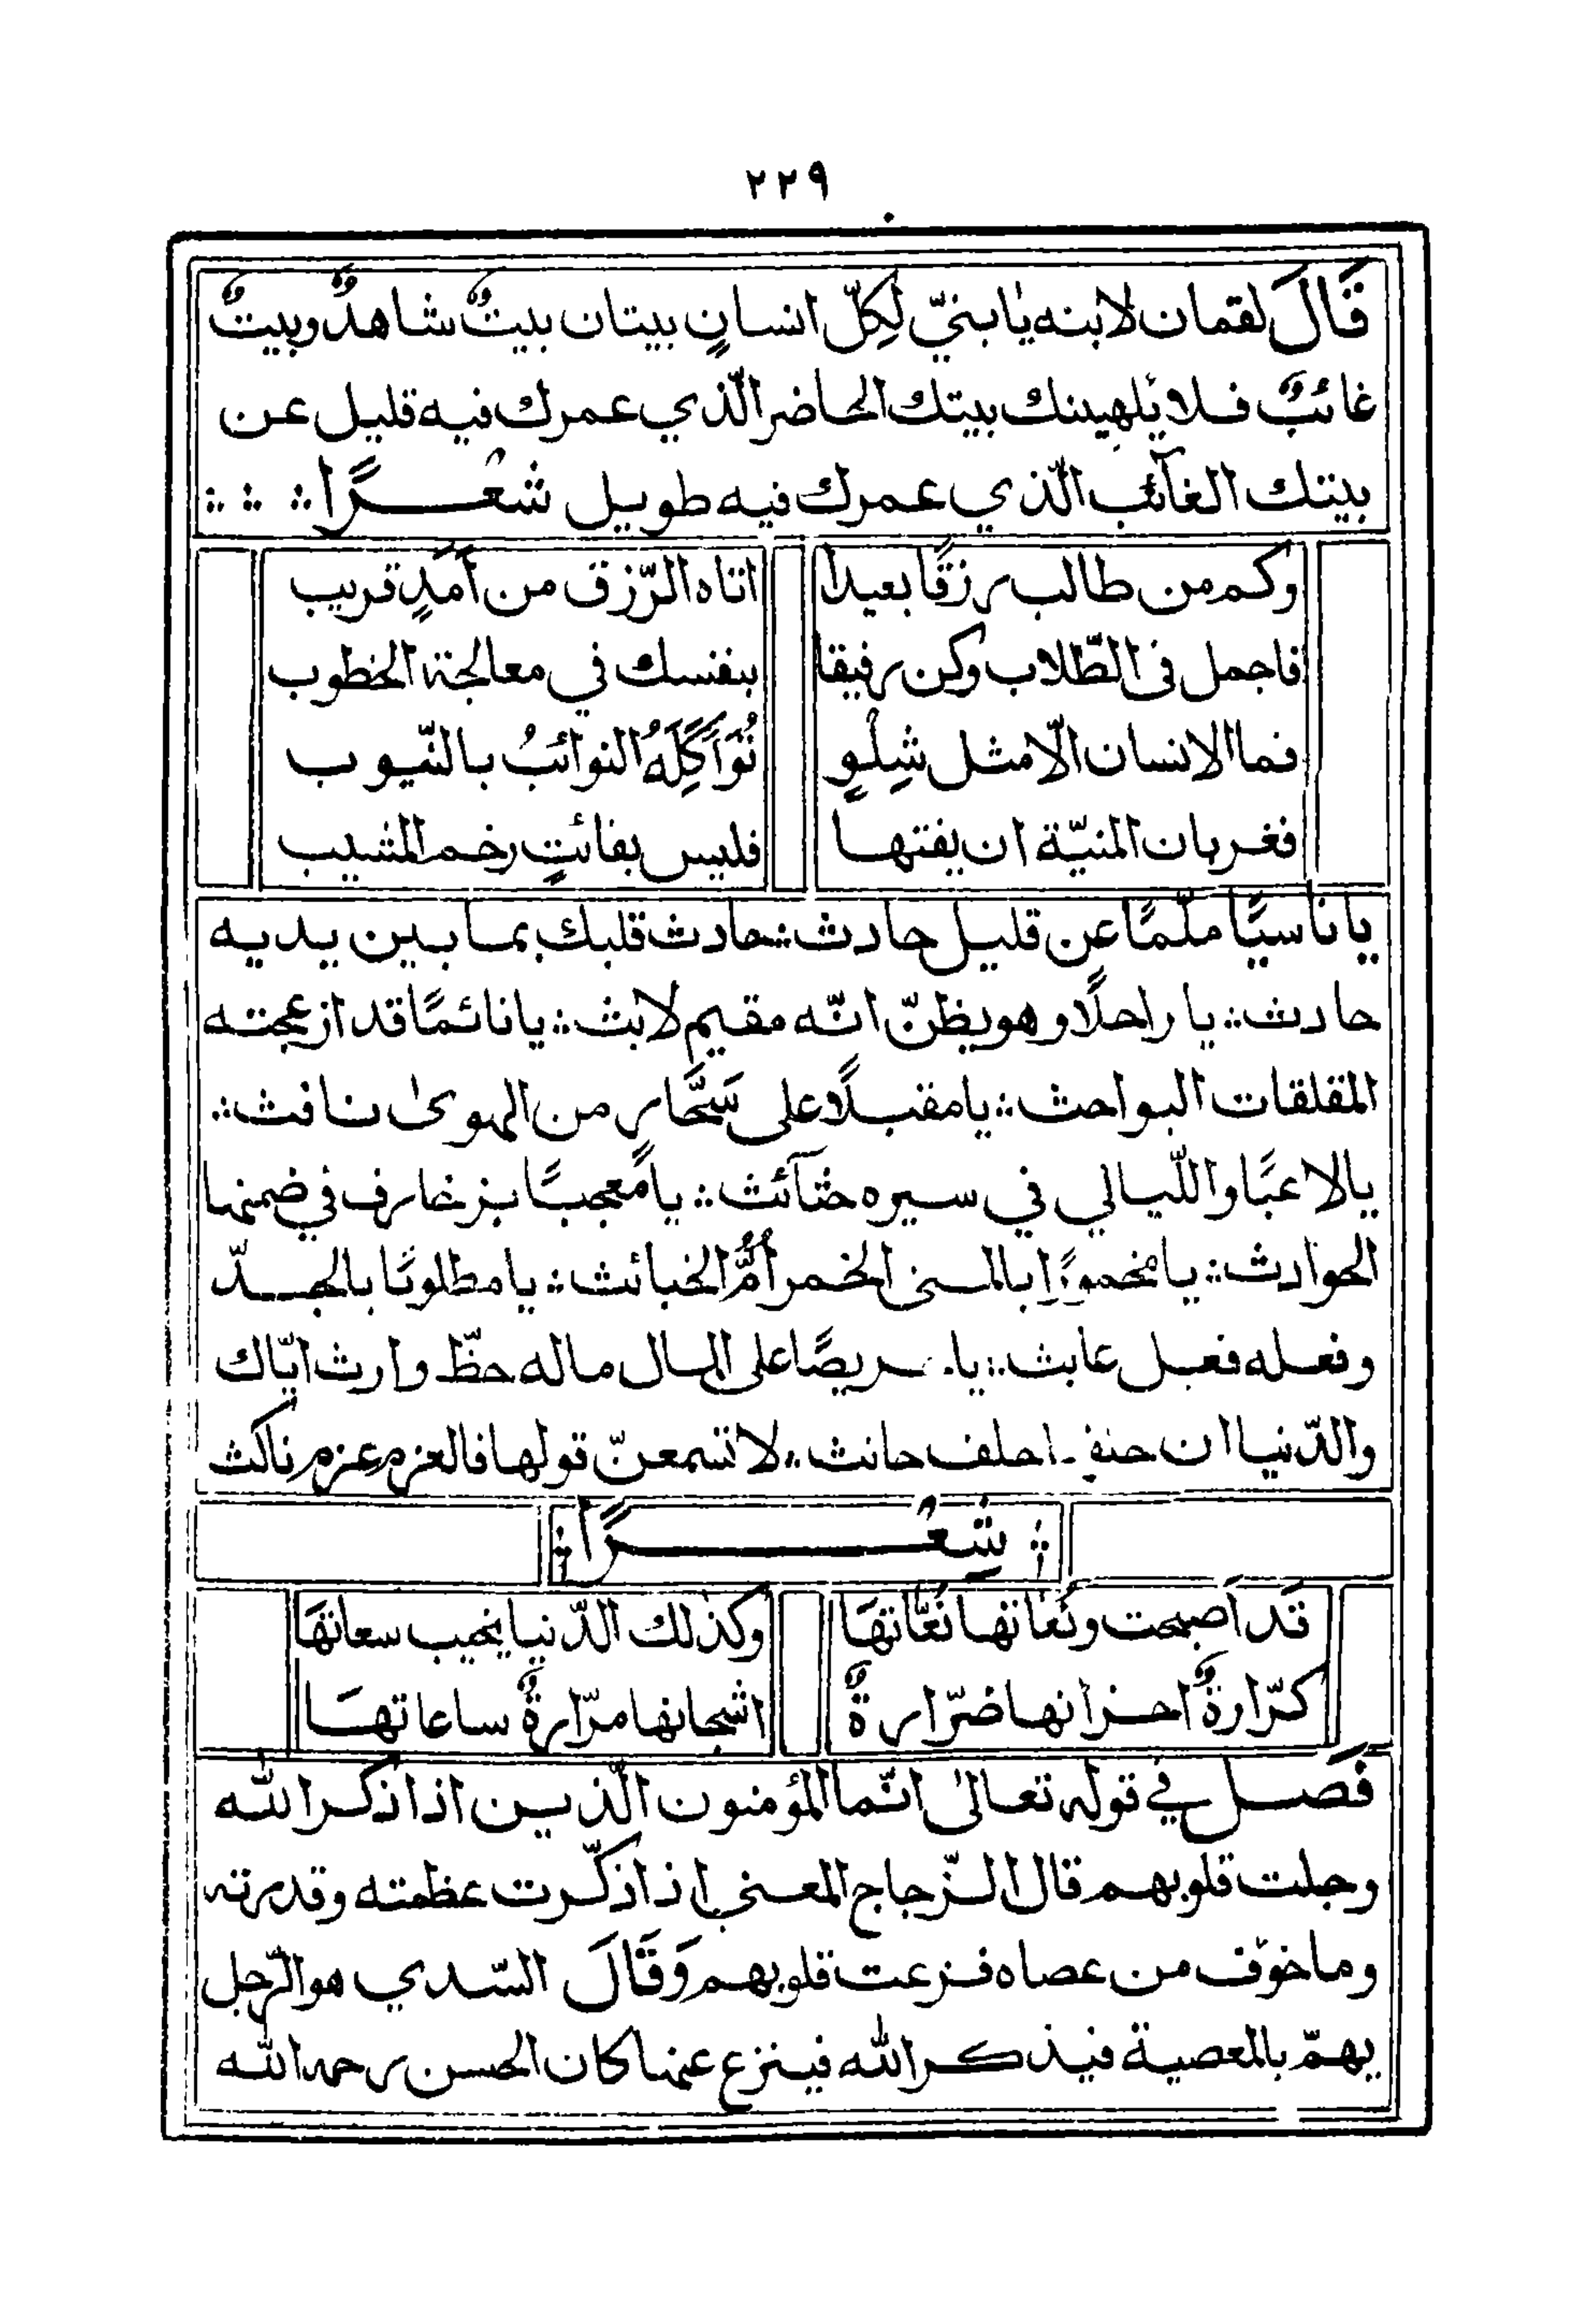 ٢٢٩
قَالَ لقمان لابنه يا بنيّ لِكلّ انسانٍ بيتان بيتٌ شاهدٌ وبيتٌ
غائبٌ فلا يلهينك بيتك الحاضر الّذي عمرك فيه قليل عن
بيتك الغآئب الّذي عمرك فيه طويل شعْرًا ؞ ؞ ؞
وكم من طالب رزقًا بعيدا اتاه الرّزق من اَمَدٍ قريب
فاجمل فى الطّلاب وكن رفيقا بنفسك في معالجة الخطوب
فما الانسان الّا مثل شِلْوٍ تُوَاَكِلَهُ النوائبُ بالنّيوب
فغربان المنيّة ان يفتها فليس بفائتٍ رخم المشيب
يا ناسيًا ملّمًا عن قليل حادث ؞ حادث قلبك بما بين يديه
حادث ؞ يا راحلًا وهو يظنّ انّه مقيم لابث ؞ يا نائمًا قد ازعجته
المقلقات البواحث ؞ يا مقبلًا على سَحَّار من الهوى نافث ؞
يا لاعبًا واللّيالي في سيره حثآئث ؞ يا معجبًا بزخارف في ضمنها
الحوادث ؞ يا مخمورًا بالمنى الخمر اُمُّ الخبائث ؞ يا مطلوبًا بالجدّ
وفعله فعل عابث ؞ يا حريصًا على المال ماله حظّ وارث ايّاك
والدّنيا ان حلف حانث ؞ لا تسمعنّ قولها فالعزم عزم ناكث
؞ شِعْرًا ؞
قَد اَصبحت ونُعَاتها نُعَّاتهَا وكذلك الدّنيا يخيب سعاتهَا
كرّارةٌ احزانها ضرّارةٌ اشجانها مرّارةٌ ساعاتهَا
فَصل في قوله تعالىٰ انّما المؤمنون الّذين اذا ذكر الله
وجلت قلوبهم قال الزّجاج المعنى اذا ذكّرت عظمته وقدرته
وما خوّف من عصاه فزعت قلوبهم وَقَالَ السّدي هو الرّجل
يهمّ بالمعصية فيذكر الله فينزع عنها كان الحسن رحمه الله